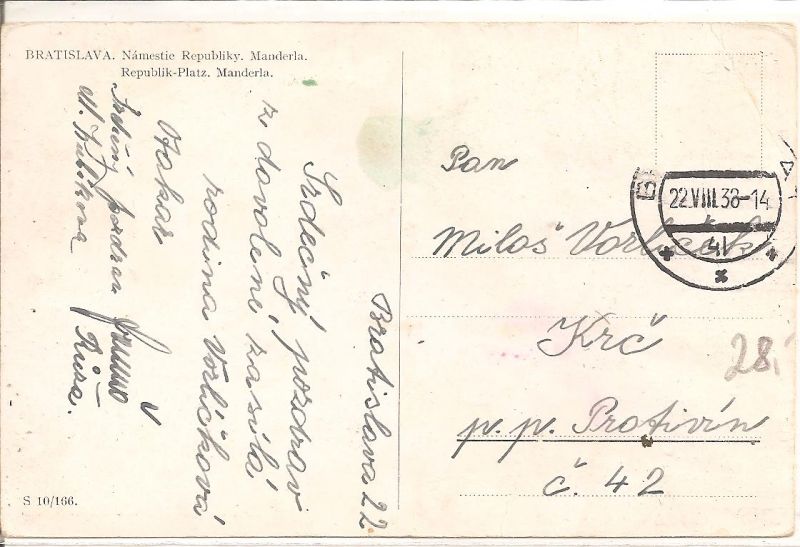 BRATISLAVA. Námestie Republiky. Manderla.
Republik-Platz. Manderla.
Bratislava 22.
Srdečný pozdrav
z dovolené, zasílá
rodina Vorlíčková
Otakar
Srdečný pozdrav
M.
Růža.
S 10/166.
Pan
Miloš Vorlíček
Krč
p. p. Protivín
č. 42
22.VIII.38-14
41
28,